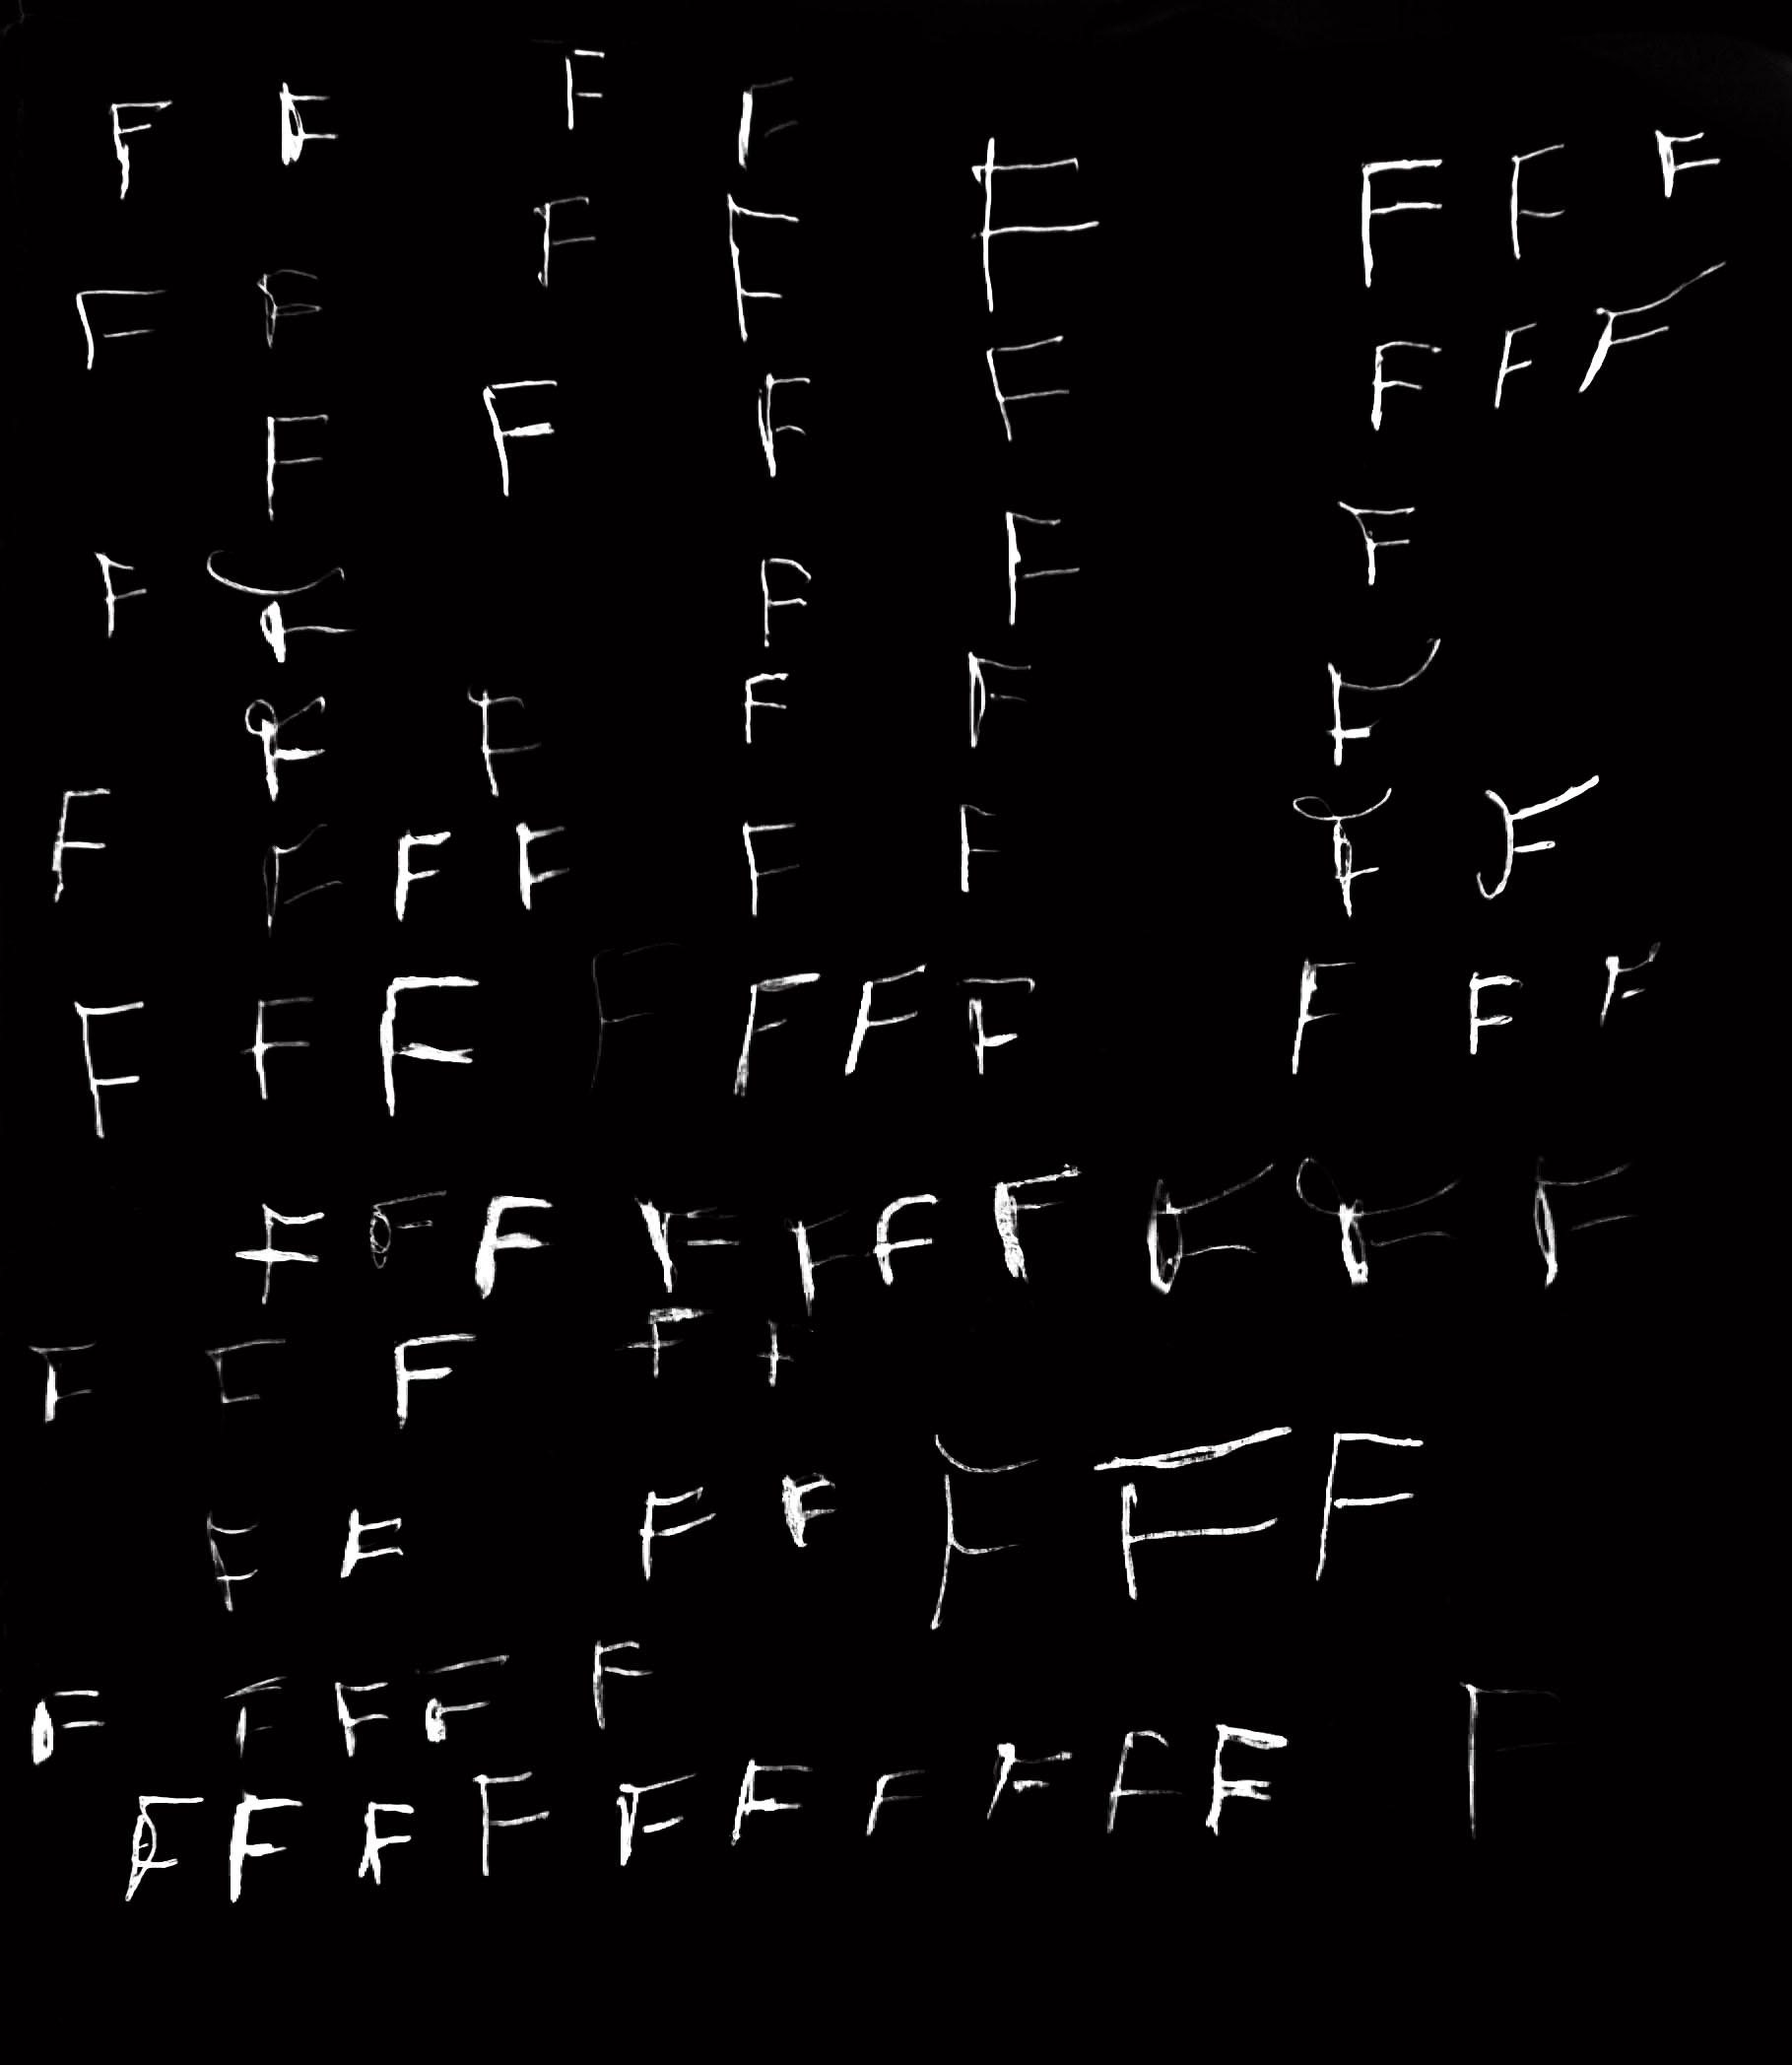 F F F F F F F F
F F F
F F F F F F
F F F F
F F F F F
F F F F F
F F F F F F F F
F F F F F F F F F F
F F F F F F F F F F
F F F F F
F F F F F F F
F F F F F F
F F F F F F F F F F